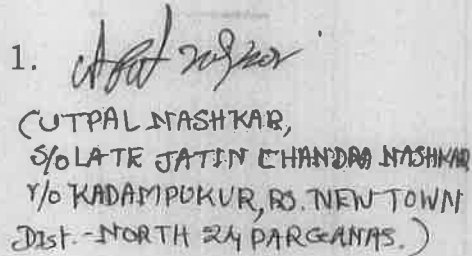 1. Utpal Naskar
(UTPAL NASHKAR,
S/O LATE JATIN CHANDRA NASHKAR
r/o KADAMPUKUR, PS. NEW TOWN
Dist.-NORTH 24 PARGANAS.)